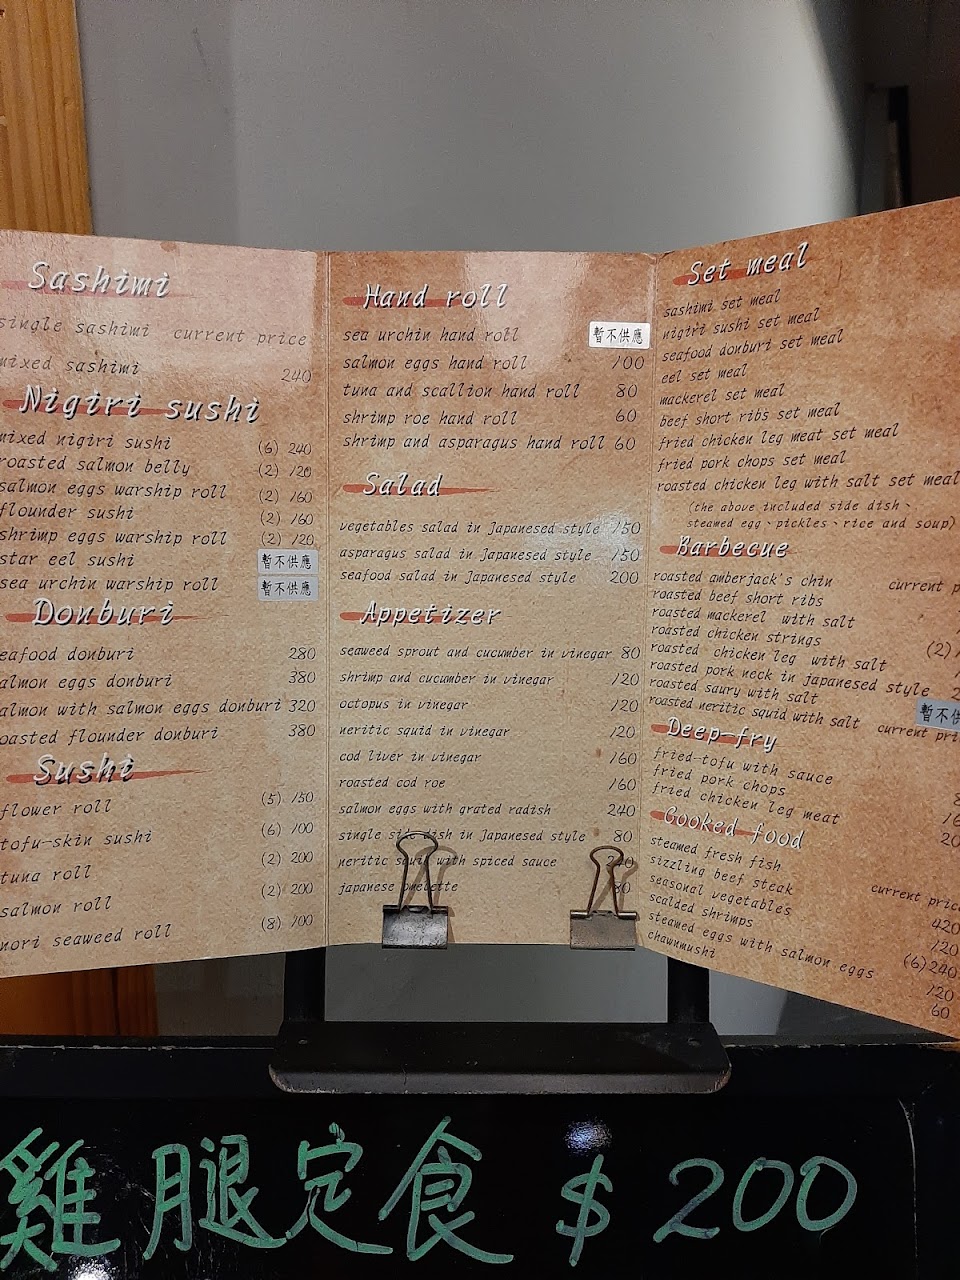 Sashimi
single sashimi current price
mixed sashimi 240
Nigiri sushi
mixed nigiri sushi (6) 240
roasted salmon belly (2) 120
salmon eggs warship roll (2) 160
flounder sushi (2) 160
shrimp eggs warship roll (2) 120
star eel sushi 暫不供應
sea urchin warship roll 暫不供應
Donburi
eafood donburi 280
almon eggs donburi 380
almon with salmon eggs donburi 320
oasted flounder donburi 380
Sushi
flower roll (5) 150
tofu-skin sushi (6) 100
tuna roll (2) 200
salmon roll (2) 200
nori seaweed roll (8) 100
Hand roll
sea urchin hand roll 暫不供應
salmon eggs hand roll 100
tuna and scallion hand roll 80
shrimp roe hand roll 60
shrimp and asparagus hand roll 60
Salad
vegetables salad in Japanesed style 150
asparagus salad in Japanesed style 150
seafood salad in Japanesed style 200
Appetizer
seaweed sprout and cucumber in vinegar 80
shrimp and cucumber in vinegar 120
octopus in vinegar 120
neritic squid in vinegar 120
cod liver in vinegar 160
roasted cod roe 160
salmon eggs with grated radish 240
single side dish in Japanesed style 80
neritic squid with spiced sauce
japanese omelette
Set meal
sashimi set meal
nigiri sushi set meal
seafood donburi set meal
eel set meal
mackerel set meal
beef short ribs set meal
fried chicken leg meat set meal
fried pork chops set meal
roasted chicken leg with salt set meal
(the above included side dish、
steamed egg、pickles、rice and soup)
Barbecue
roasted amberjack's chin current p
roasted beef short ribs
roasted mackerel with salt
roasted chicken strings (2)
roasted chicken leg with salt
roasted pork neck in japanesed style 2
roasted saury with salt 暫不供
roasted neritic squid with salt current pri
Deep-fry
fried-tofu with sauce 8
fried pork chops 16
fried chicken leg meat 20
Cooked food
steamed fresh fish current price
sizzling beef steak 420
seasonal vegetables 120
scalded shrimps (6) 240
steamed eggs with salmon eggs 120
chawnmushi 60
雞腿定食 $200